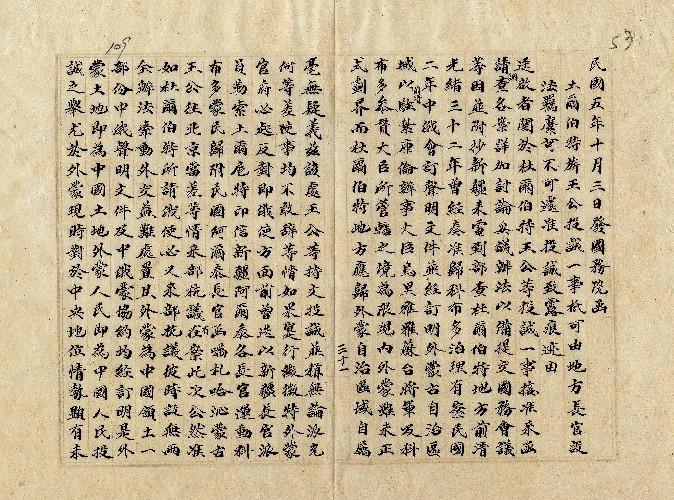 53
民國五年十月三日發國務院函
土爾伯特旂王公投誠一事祇可由地方長官設
法羈縻可不可遽准投誠致露痕迹由
逕啟者關於杜爾伯特王公等投誠一事接准來函
請查各案詳加討論妥議辦法以備提交國務會議
等因並附抄新疆來電到部查杜爾伯特地方前清
光緒三十二年曾經奏准歸科布多治理有案民國
二年中俄會訂聲明文件業經訂明外蒙古自治區
域以前清駐紮庫倫辦事大臣烏里雅雅蘇台將軍及科
布多參贊大臣所管轄之境為限現內外蒙雖未正
式劃界而杜爾伯特地方應歸外蒙自治區域自屬
三十一
109
毫無疑義茲該處王公等持文投誠並稱無論派充
何等差使事均不敢辭等情如果實行微特外蒙
官府必起反對即俄使方面前曾迭以新疆長官派
員為索土爾扈特印信新疆阿爾泰各長官運動科
布多蒙民歸附民國阿爾泰長官函唔札哈沁蒙古
王公往北京當差等情來部抗議有在案此次公然准
如杜爾伯特所請俄使必又來部抗議彼時設無兩
全辦法牽動外交益難處置且外蒙為中國領土一
部份中俄聲明文件及中俄蒙協約均經訂明是外
蒙土地即為中國土地外蒙人民即為中國人民投
誠之舉尤於外蒙現時對於中央地位情勢顯有未